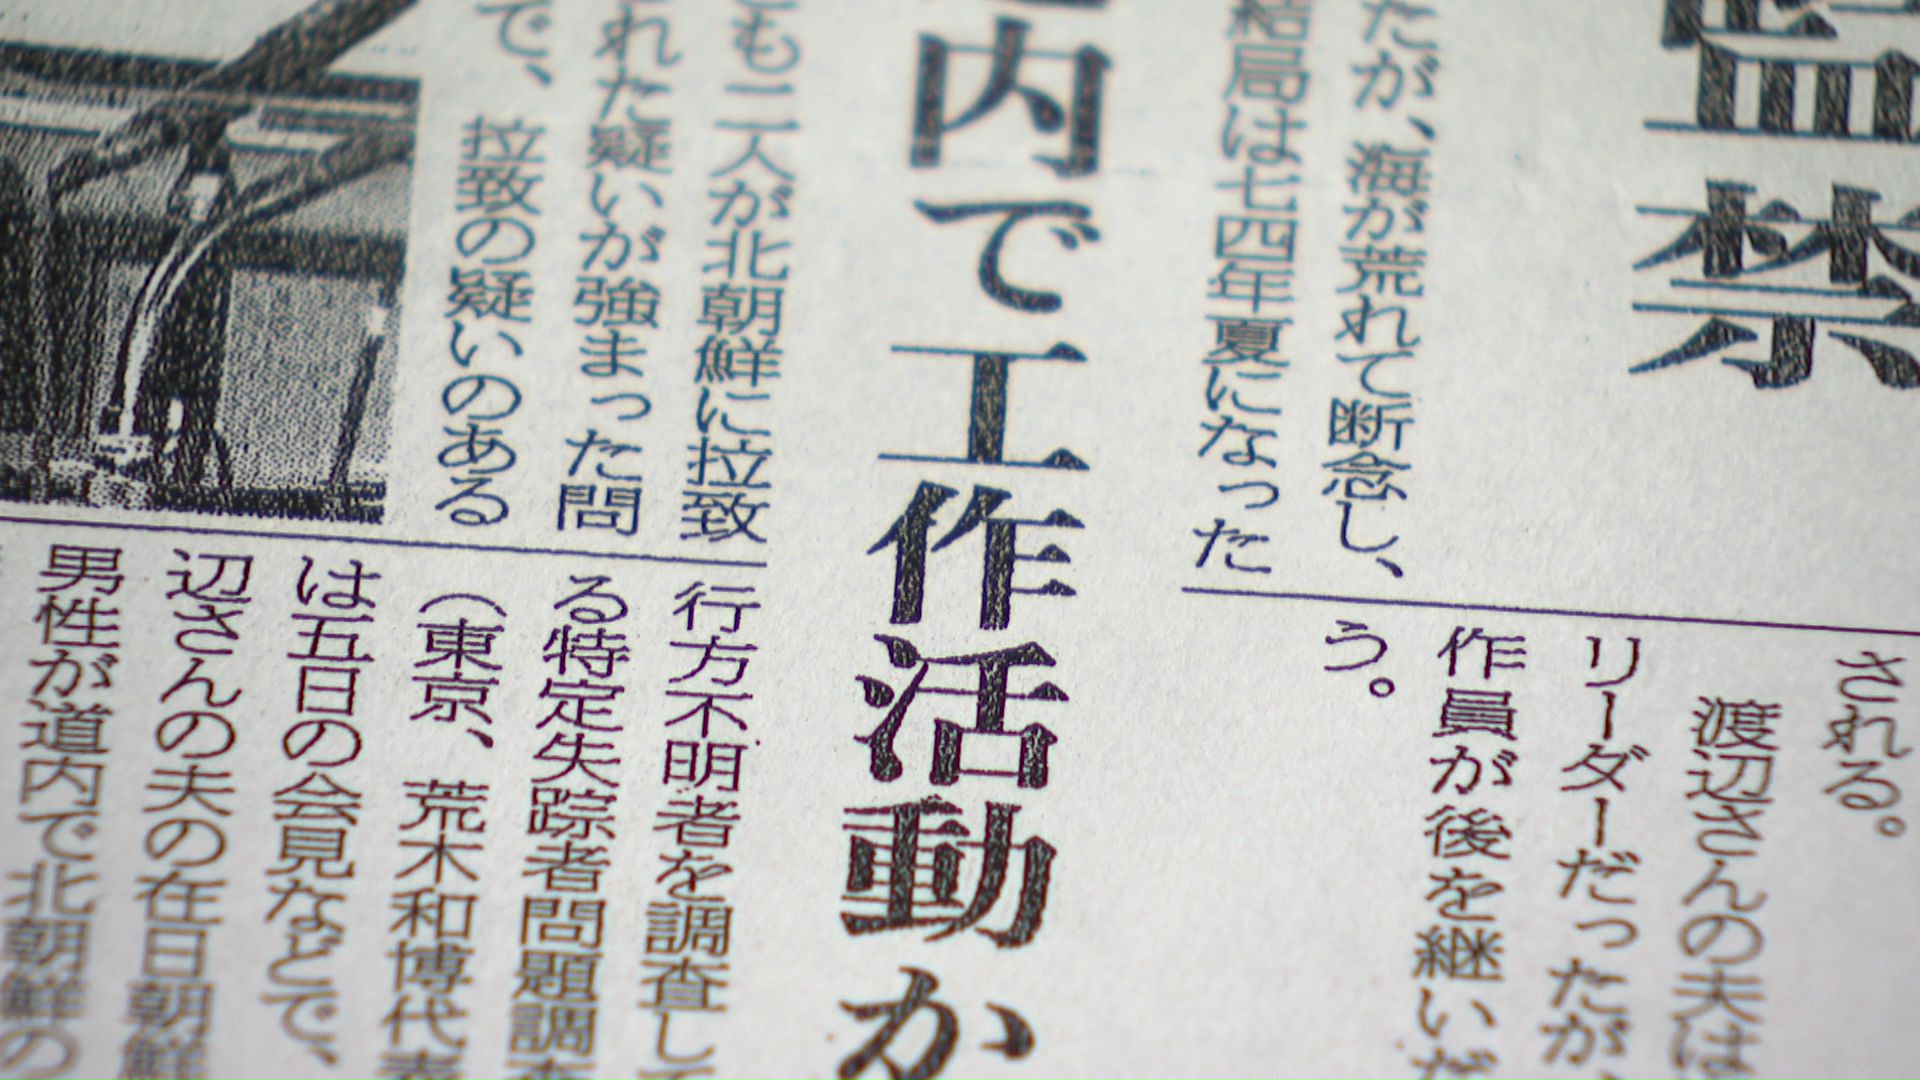 監禁
たが、海が荒れて断念し、
結局は七四年夏になった
される。
渡辺さんの夫は
リーダーだったが、
作員が後を継いだ
う。
内で工作活動か
も二人が北朝鮮に拉致
れた疑いが強まった問
で、拉致の疑いのある
行方不明者を調査して
る特定失踪者問題調査
(東京、荒木和博代表
は五日の会見などで、
辺さんの夫の在日朝鮮
男性が道内で北朝鮮の